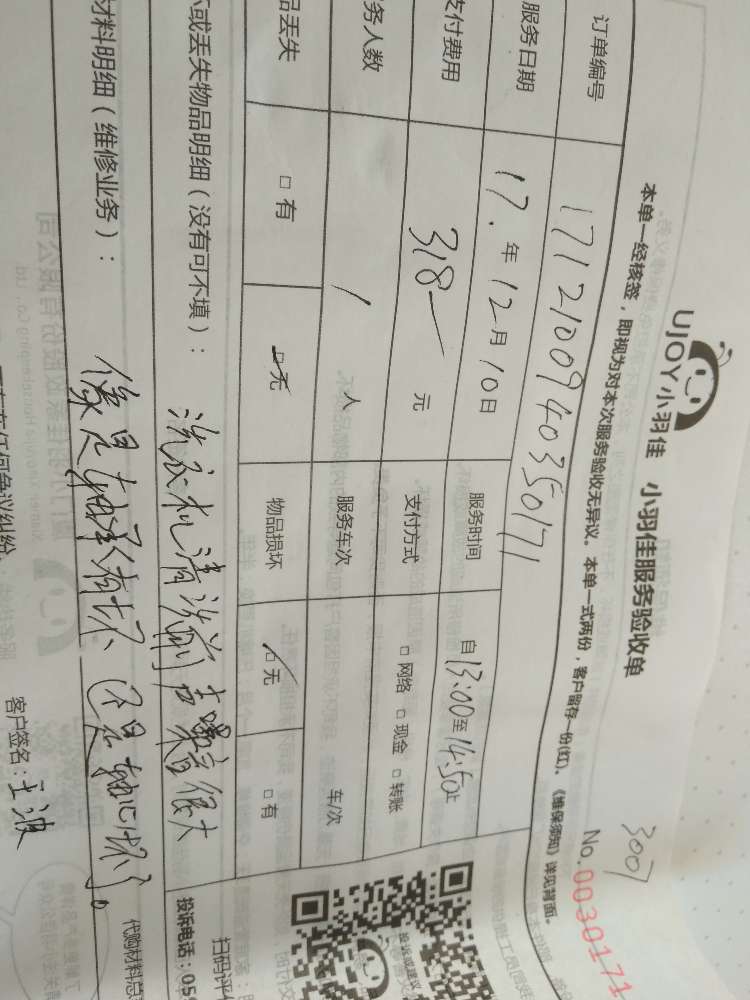 3007
UJOY小羽佳 小羽佳服务验收单 No.0030171
本单一经核签，即视为对本次服务验收无异议。本单一式两份，客户留存一份(红)。《维保须知》详见背面。
订单编号 1712100940350171
服务日期 17.年12月10日 服务时间 自13:00至14:50止
支付费用 318一 元 支付方式 □网络 □现金 □转账
务人数 1 人 服务车次 车/次
品丢失 □有 □无 物品损坏 □无 □有
或丢失物品明细（没有可不填）： 洗衣机清洗前声噪音很大
材料明细（维修业务）： 像是轴承有坏 还是轴心坏了。
代购材料总
扫码评
投诉电话：059
有任何争议纠纷
客户签名：王波